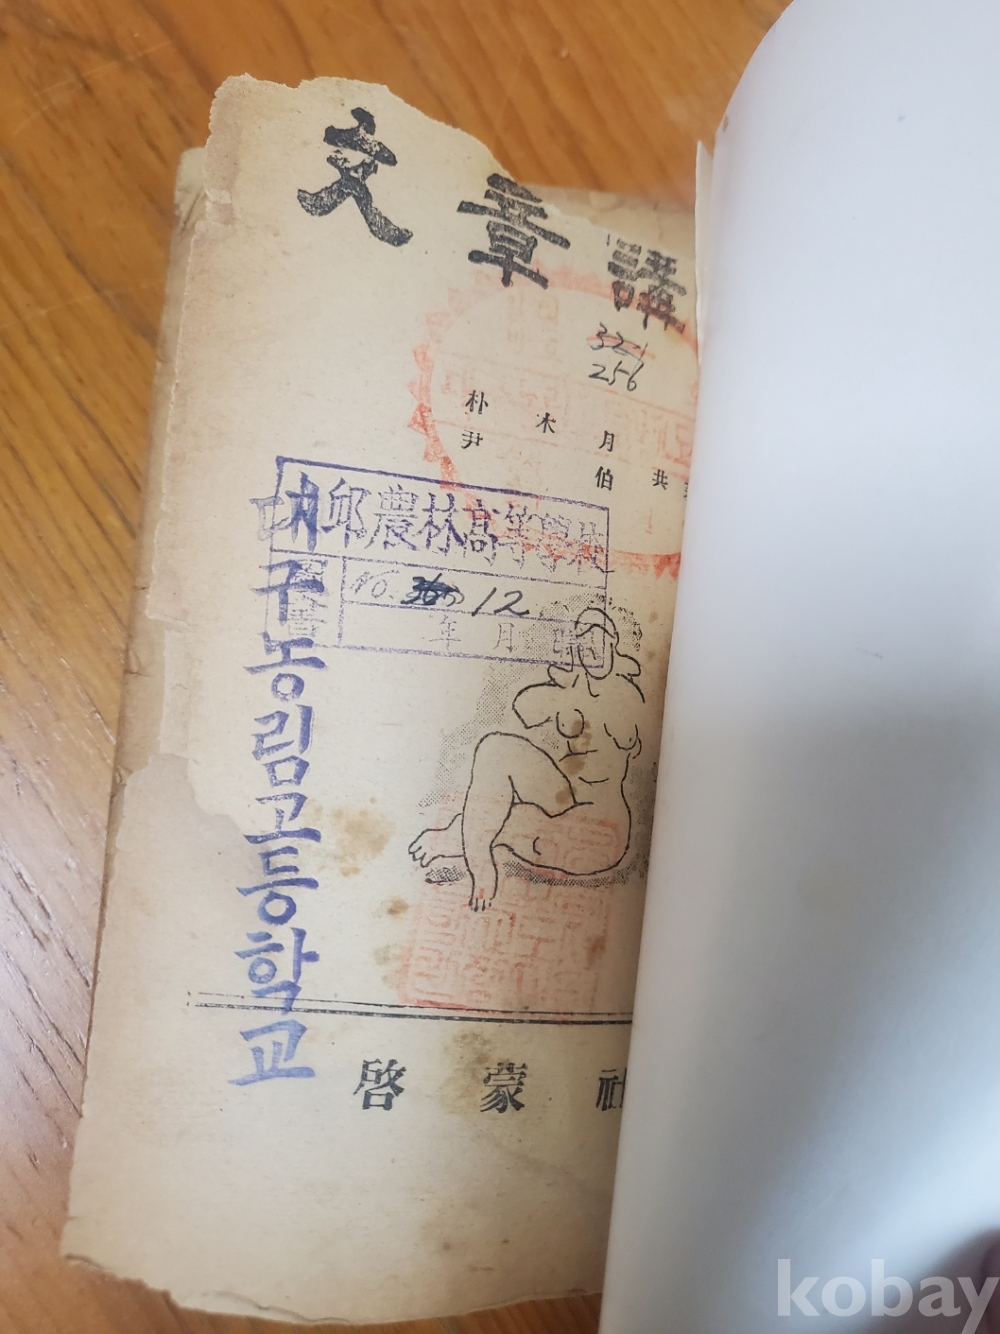 文章講
321
256
朴木月
尹伯共
大邱農林高等學校
No. 360 12
年月
대구농림고등학교
啓蒙社
kobay